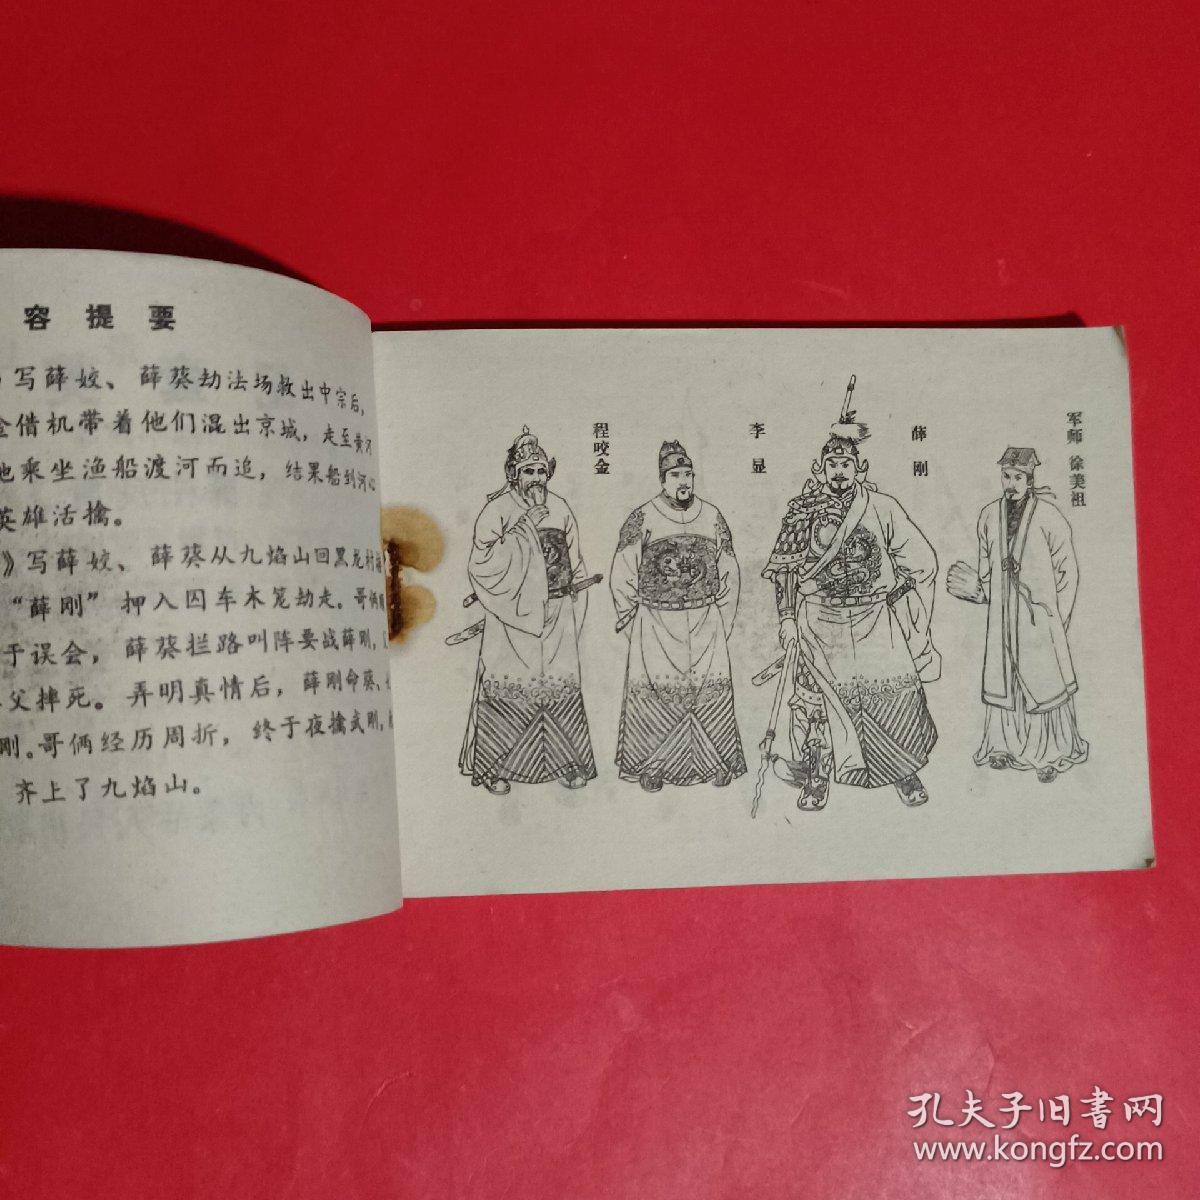 容提要
写薛姣、薛葵劫法场救出中宗后，
金借机带着他们混出京城，走至黄河
他乘坐渔船渡河而追，结果船到河心
英雄活擒。
》写薛姣、薛葵从九焰山回黑龙村
“薛刚”押入囚车木笼劫走。哥俩
于误会，薛葵拦路叫阵要战薛刚，
父摔死。弄明真情后，薛刚命葵、
刚。哥俩经历周折，终于夜擒武刚，
齐上了九焰山。
程咬金
李显
薛刚
军师 徐美祖
孔夫子旧书网
www.kongfz.com